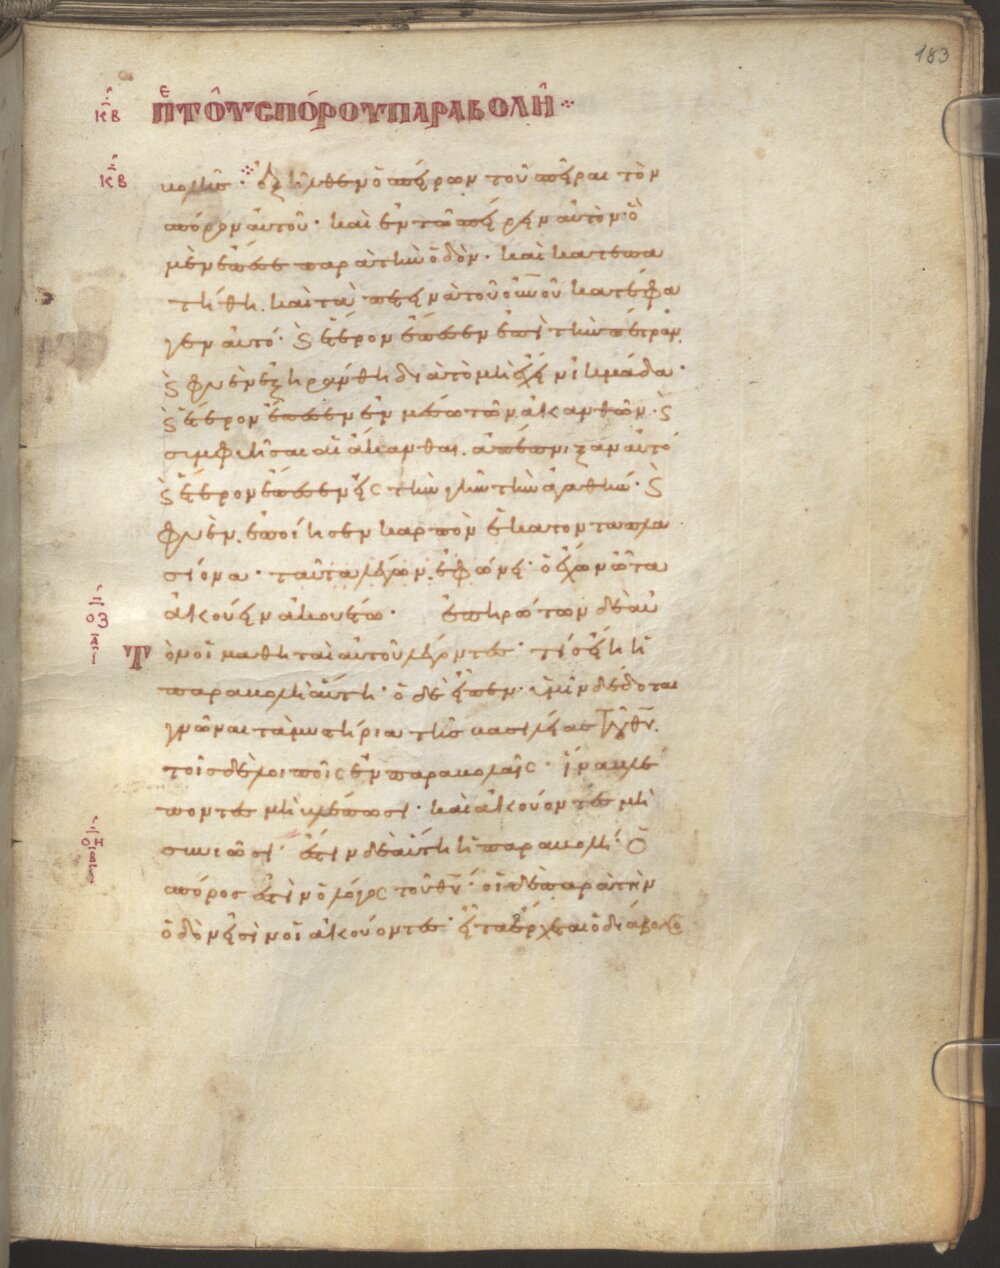 183
κβ πε τοῦ σπόρου παραβολῆ
κβ βολῆς· ἐξῆλθεν ὁ σπείρων τοῦ σπεῖραι τὸν
σπόρον αὐτοῦ· καὶ ἐν τῶ σπείρειν αὐτὸν· ὃ
μὲν ἔπεσε παρὰ τὴν ὁδὸν· καὶ κατεπα
τήθη. καὶ τὰ πετεινὰ τοῦ οὐνοῦ κατέφα
γεν αὐτό· ϛ ἕτερον ἔπεσεν ἐπὶ τὴν πέτραν
ϛ φυὲν ἐξηράνθη διὰ τὸ μὴ ἔχειν ἰκμάδα·
ϛ ἕτερον ἔπεσεν ἐν μέσω τῶν ἀκανθῶν· ϛ
συμφυεῖσαι αἱ ἄκανθαι. ἀπέπνιξαν αὐτό
ϛ ἕτερον ἔπεσεν εἰς τὴν γῆν τὴν ἀγαθὴν· ϛ
φυὲν. ἐποίησεν καρπὸν ἑκατονταπλα
σίονα· ταῦτα λέγων. ἐφώνει· ὁ ἔχων ὦτα
οζ ἀκούειν ἀκουέτω· ἐπηρώτων δὲ αὐ
τὸν οἱ μαθηταὶ αὐτοῦ λέγοντες· τίς εἴη ἡ
παραβολὴ αὕτη· ὁ δὲ εἶπεν· ὑμῖν δέδοται
γνῶναι τὰ μυστήρια τῆς βασιλείας τοῦ θυ.
τοῖς δὲ λοιποῖς ἐν παραβολαῖς· ἵνα βλέ
ποντες μὴ βλέπωσι· καὶ ἀκούοντες μὴ
οη συνιῶσι· ἔστιν δὲ αὕτη ἡ παραβολή· ὁ
σπόρος ἐστὶν ὁ λόγος τοῦ θυ· οἱ δὲ παρὰ τὴν
ὁδὸν εἰσὶν οἱ ἀκούοντες· εἶτα ἔρχεται ὁ διάβολος